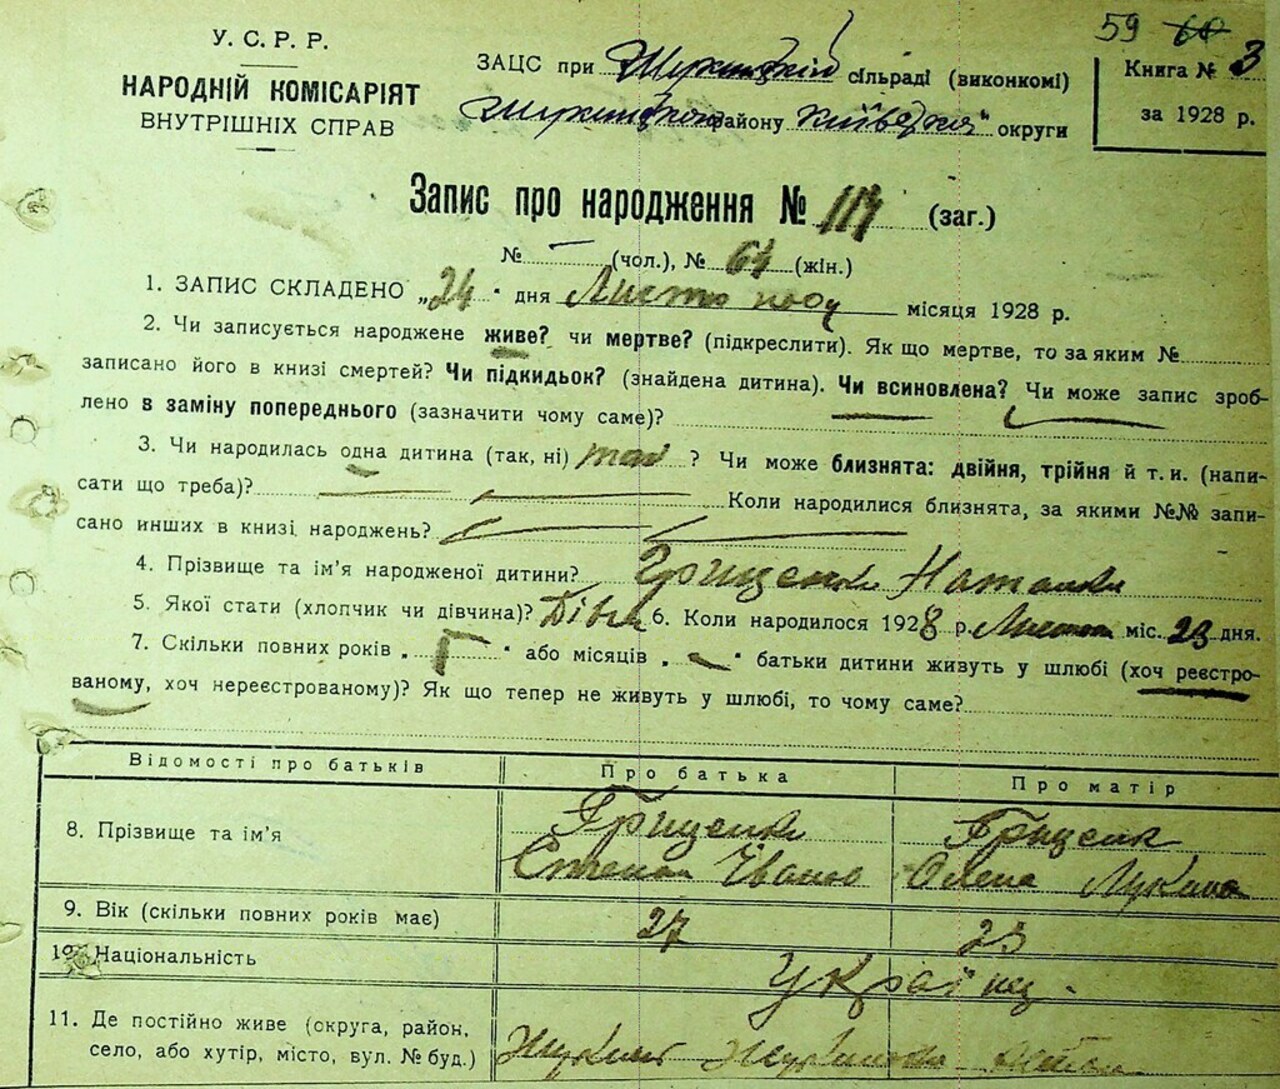 59 60
У. С. Р. Р.
НАРОДНІЙ КОМІСАРІЯТ
ВНУТРІШНІХ СПРАВ
ЗАЦС при сільраді (виконкомі)
району Київської округи
Книга № 3
за 1928 р.
Запис про народження № 114 (заг.)
№ — (чол.), № 64 (жін.)
1. ЗАПИС СКЛАДЕНО „24" дня Листопаду місяця 1928 р.
2. Чи записується народжене живе? чи мертве? (підкреслити). Як що мертве, то за яким №
записано його в книзі смертей? Чи підкидьок? (знайдена дитина). Чи всиновлена? Чи може запис зроб-
лено в заміну попереднього (зазначити чому саме)?
3. Чи народилась одна дитина (так, ні) так ? Чи може близнята: двійня, трійня й т. и. (напи-
сати що треба)? Коли народилися близнята, за якими №№ запи-
сано инших в книзі народжень?
4. Прізвище та ім'я народженої дитини? Грищенко Наталка
5. Якої стати (хлопчик чи дівчина)? Дівч 6. Коли народилося 1928 р. Листоп міс. 23 дня.
7. Скільки повних років „ " або місяців „ — " батьки дитини живуть у шлюбі (хоч реєстро-
ваному, хоч нереєстрованому)? Як що тепер не живуть у шлюбі, то чому саме?
Відомості про батьків Про батька Про матір
8. Прізвище та ім'я Грищенко Грищенк
Степан Іванов Олена Лукина
9. Вік (скільки повних років має) 27 23
10. Національність Україн
11. Де постійно живе (округа, район,
село, або хутір, місто, вул. № буд.)